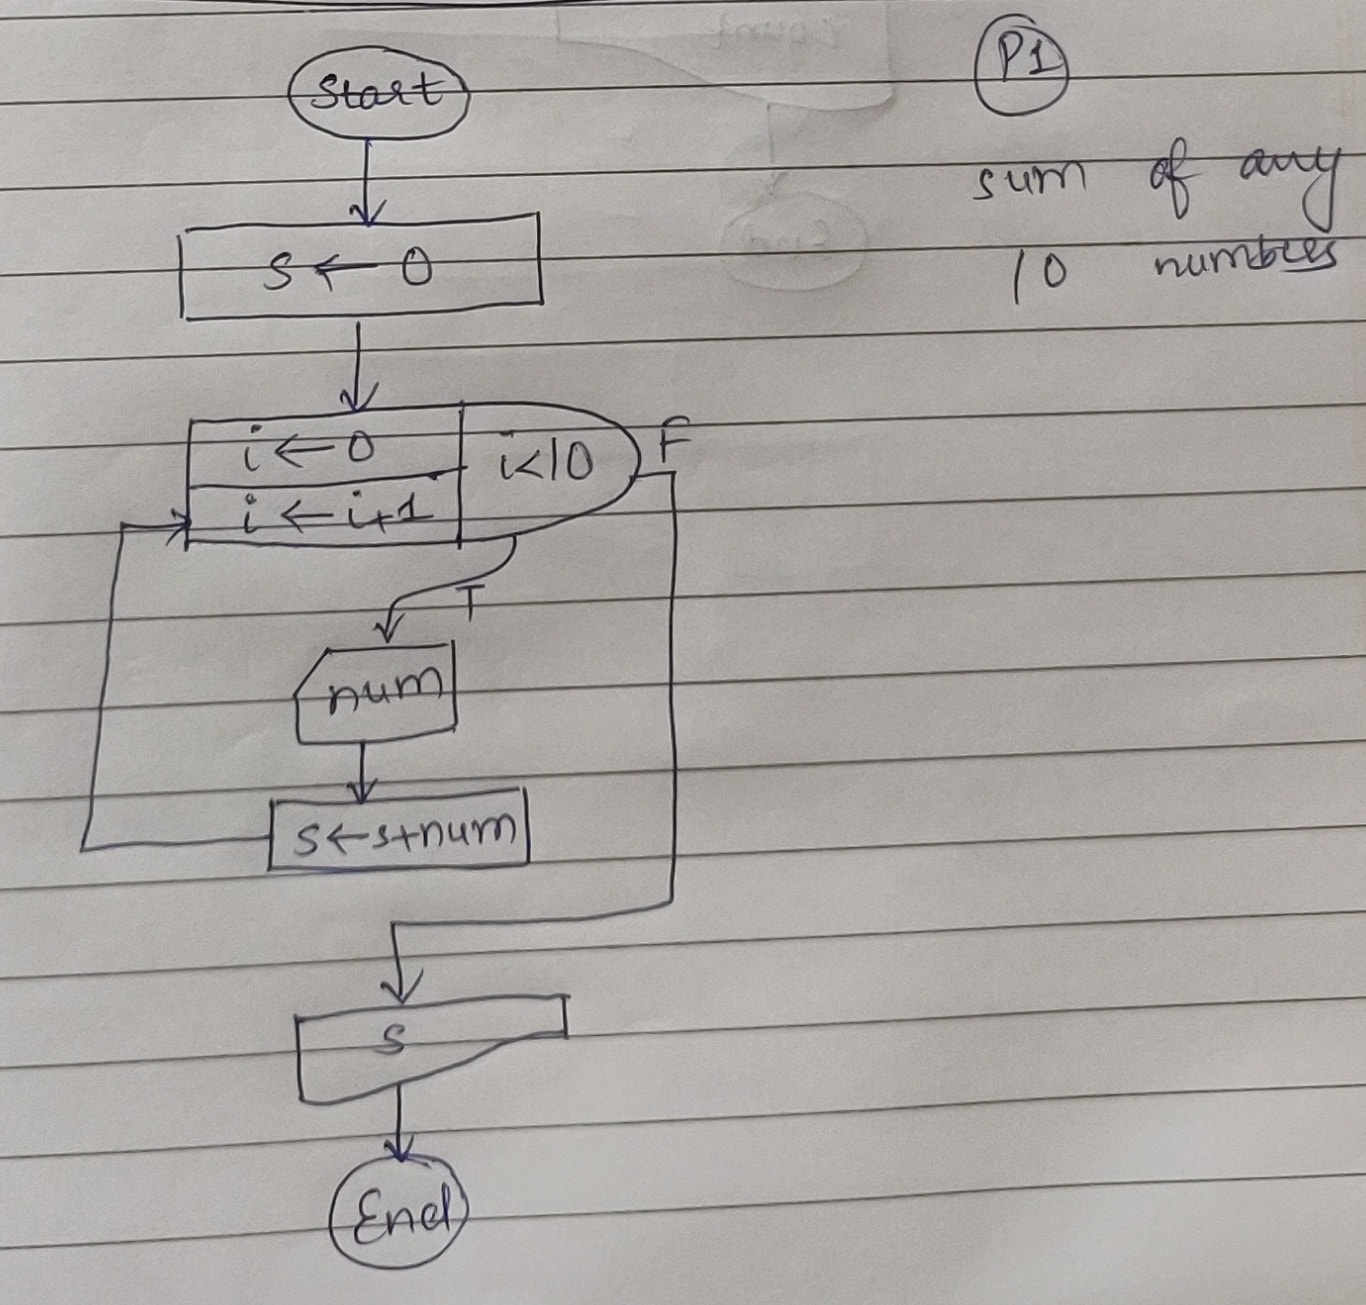 P1
sum of any
10 numbers
Start
S ← 0
i ← 0
i ← i+1
i<10
F
T
num
S ← s+num
S
End